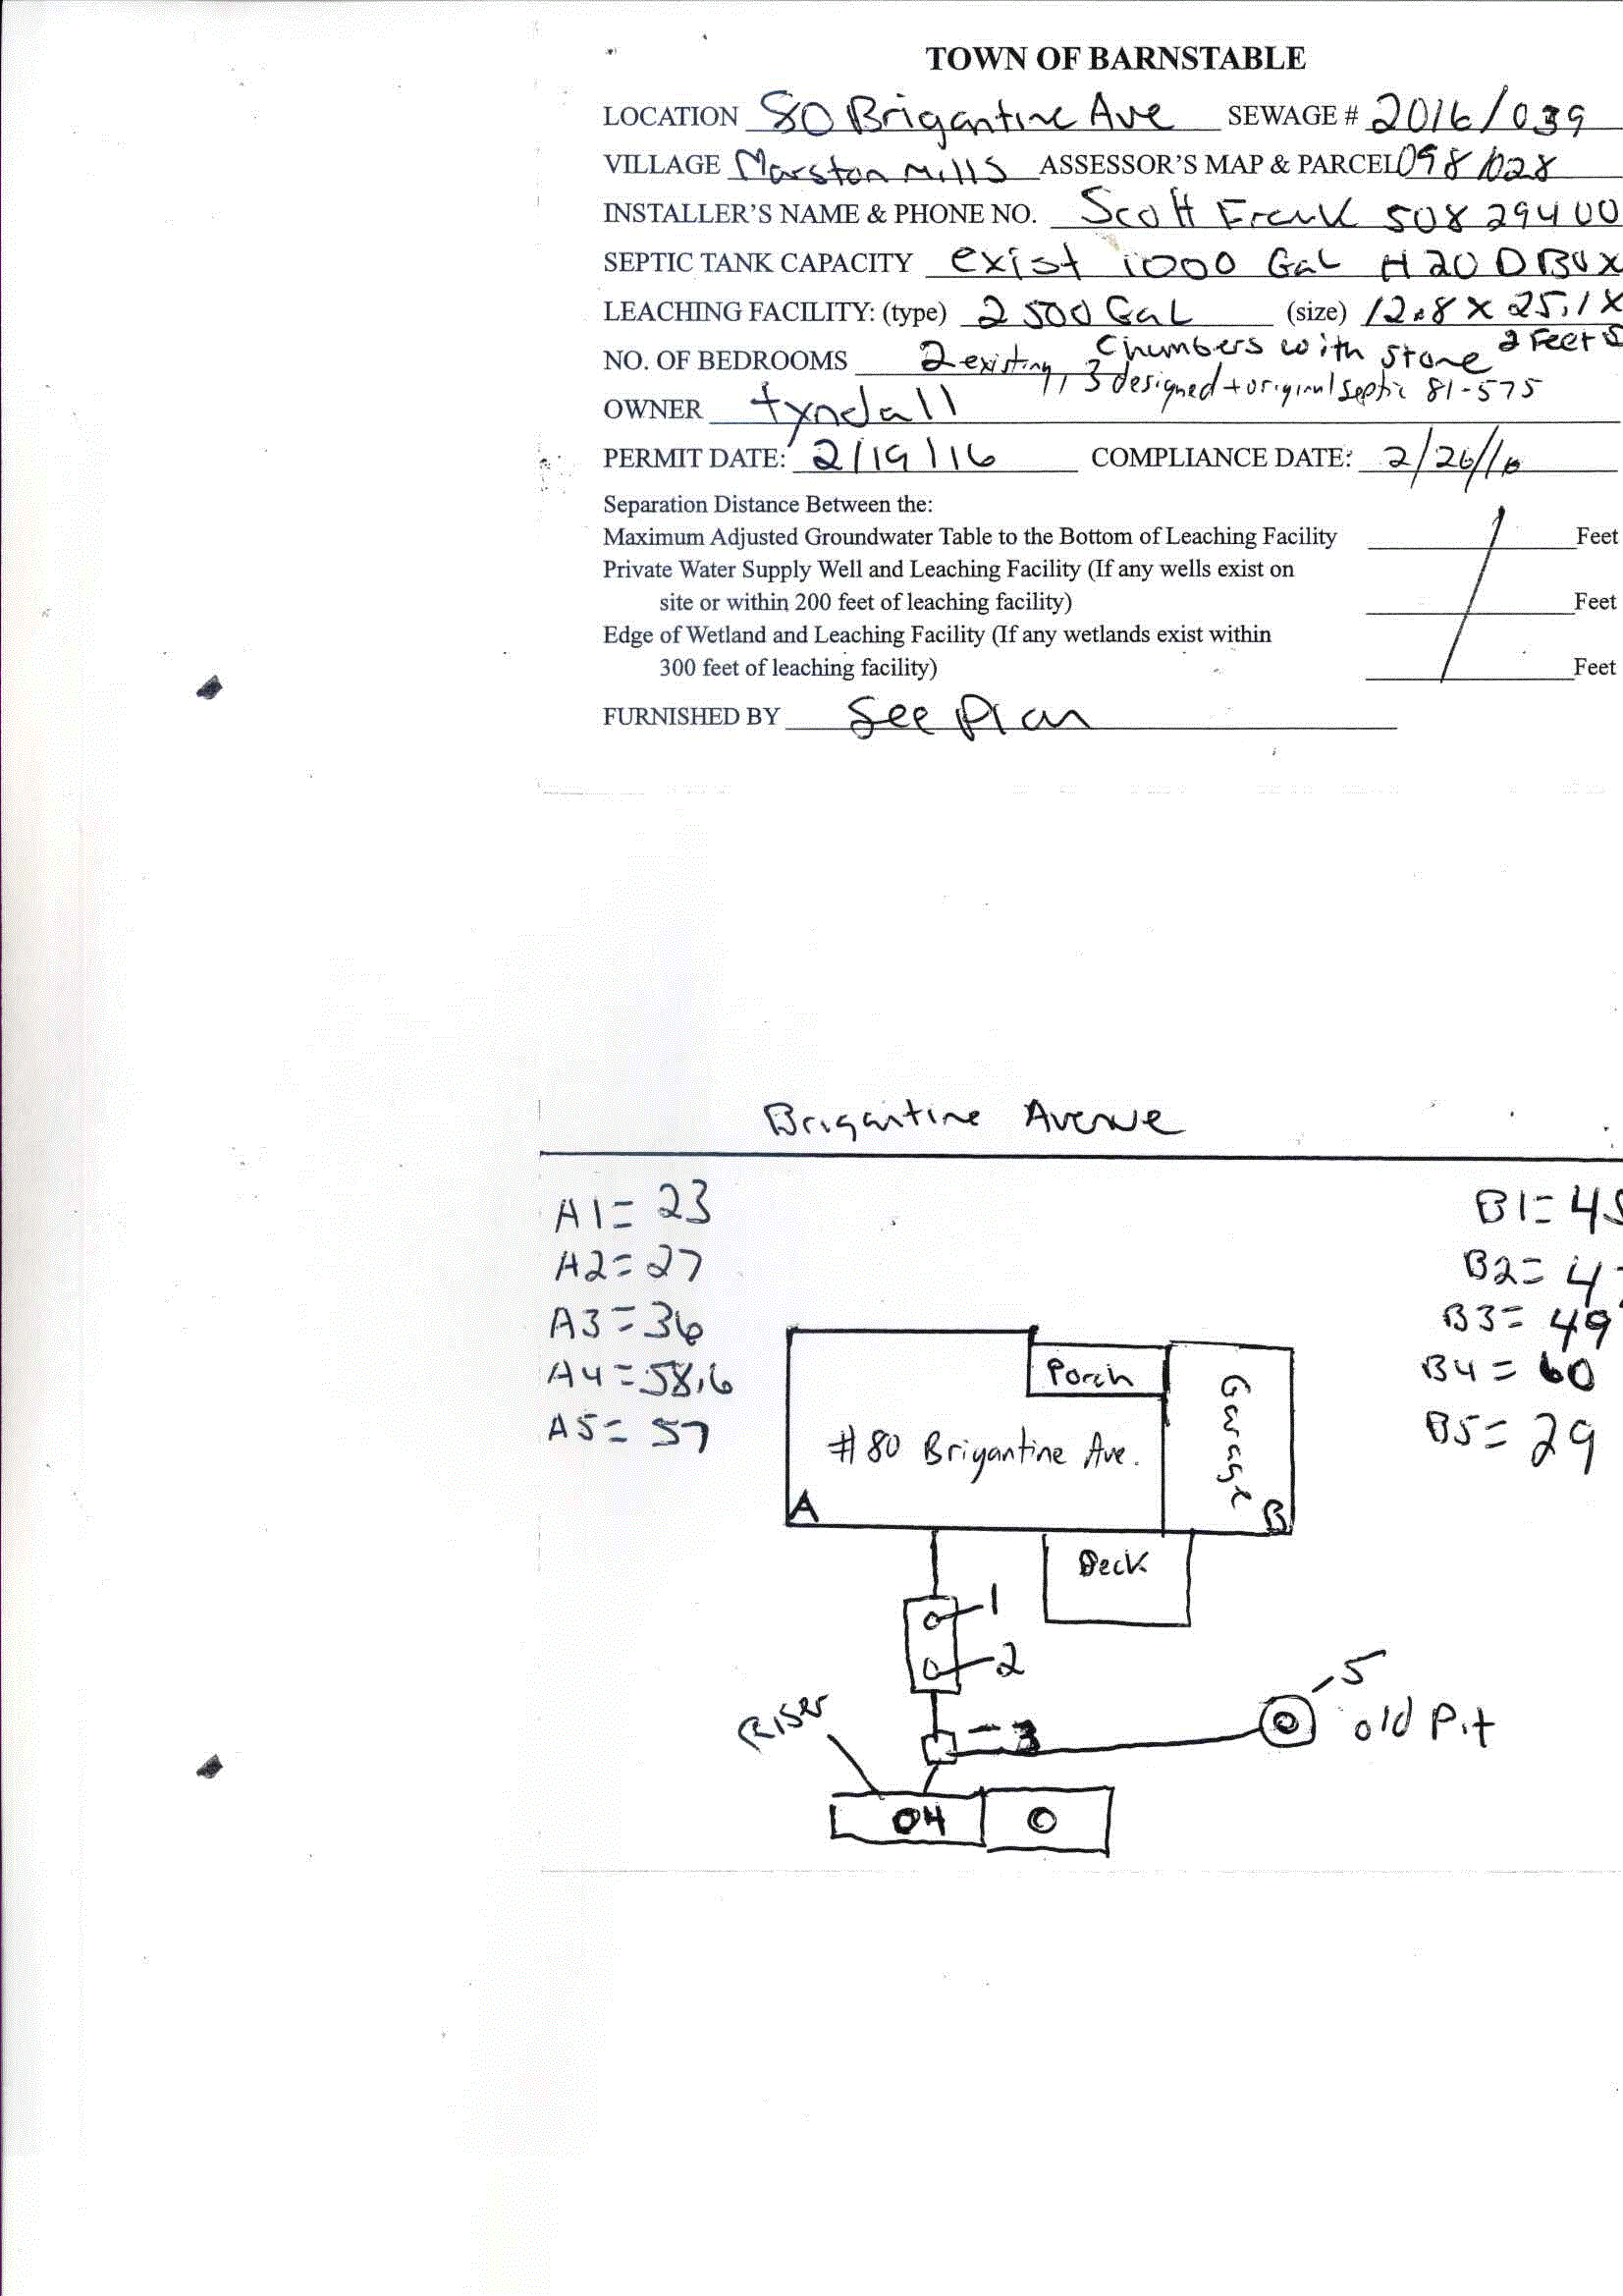 TOWN OF BARNSTABLE
LOCATION 80 Brigantine Ave SEWAGE # 2016/039
VILLAGE Marston Mills ASSESSOR'S MAP & PARCEL 098/028
INSTALLER'S NAME & PHONE NO. Scott Frank 508 294 00
SEPTIC TANK CAPACITY exist 1000 Gal H20 D Box
LEACHING FACILITY: (type) 2 500 Gal (size) 12.8 x 25.1 x
Chambers with stone 2 Feet
NO. OF BEDROOMS 2 existing, 3 designed + original septic 81-575
OWNER tyndall
PERMIT DATE: 2/19/16 COMPLIANCE DATE: 2/26/16
Separation Distance Between the:
Maximum Adjusted Groundwater Table to the Bottom of Leaching Facility Feet
Private Water Supply Well and Leaching Facility (If any wells exist on
site or within 200 feet of leaching facility) Feet
Edge of Wetland and Leaching Facility (If any wetlands exist within
300 feet of leaching facility) Feet
FURNISHED BY See Plan
Brigantine Avenue
A1= 23 B1= 45
A2= 27 B2= 4
A3= 36 B3= 49
A4= 58.6 B4= 60
A5= 57 B5= 29
Porch
Garage
#80 Brigantine Ave.
A B
Deck
1
2
Riser
3
5
old Pit
4